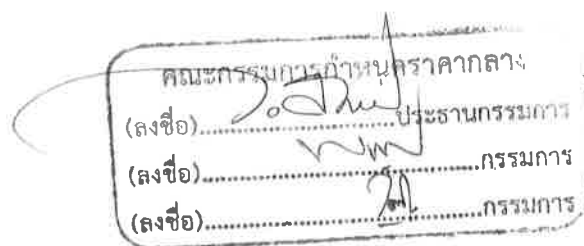 คณะกรรมการกำหนดราคากลาง
(ลงชื่อ)..............................ประธานกรรมการ
(ลงชื่อ)..........................................กรรมการ
(ลงชื่อ)..........................................กรรมการ